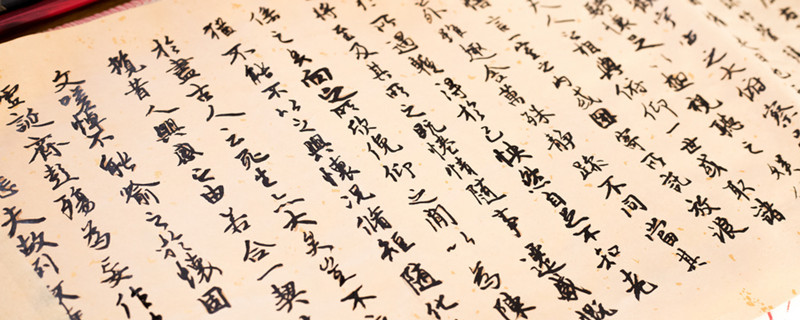 俯察
騁懷 視聽之娛
人之相與俯仰一世或取諸
言一室之內或因寄所託放浪
雖趣舍萬殊靜躁不同當其
所遇蹔得於己快然自足不知老
將至及其所之既惓情隨事遷感慨
係之矣向之所欣俛仰之間以為陳
猶不能不以之興懷況脩短隨化
於盡古人云死生亦大矣豈不
攬昔人興感之由若合一契
文嗟悼不能喻之於懷固
虛誕齊彭殤為妄作
悲夫故列